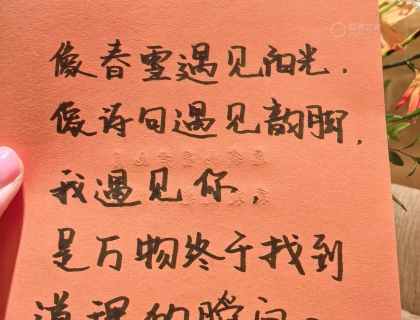 像春雪遇见阳光.
像诗句遇见韵脚,
我遇见你,
是万物终于找到
道理的瞬间。